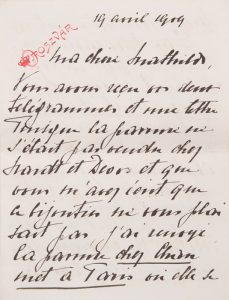 19 avril 1909
TOSZVÁR
Ma chère Mathilde,
Vous avons reçu vos deux
télégrammes et une lettre
Puisque la parure ne
s'était pas vendue chez
et que
vous m'avez écrit que
ce bijoutier ne vous plai
sait pas j'ai envoyé
la parure chez Chau
met à Paris où elle se